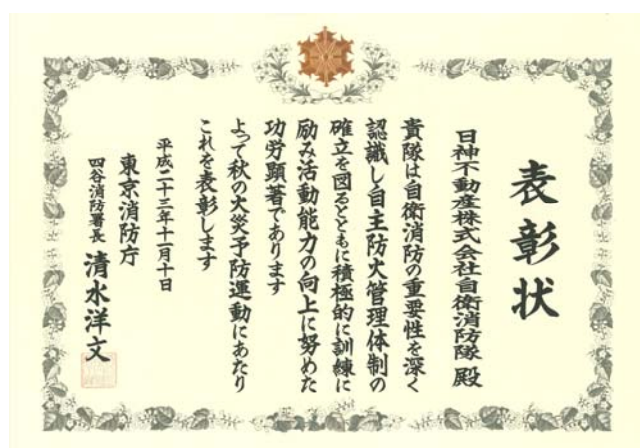 表彰状
日神不動産株式会社自衛消防隊 殿
貴隊は自衛消防の重要性を深く
認識し自主防火管理体制の
確立を図るとともに積極的に訓練に
励み活動能力の向上に努めた
功労顕著であります
よって秋の火災予防運動にあたり
これを表彰します
平成二十三年十一月十日
東京消防庁
四谷消防署長 清水洋文